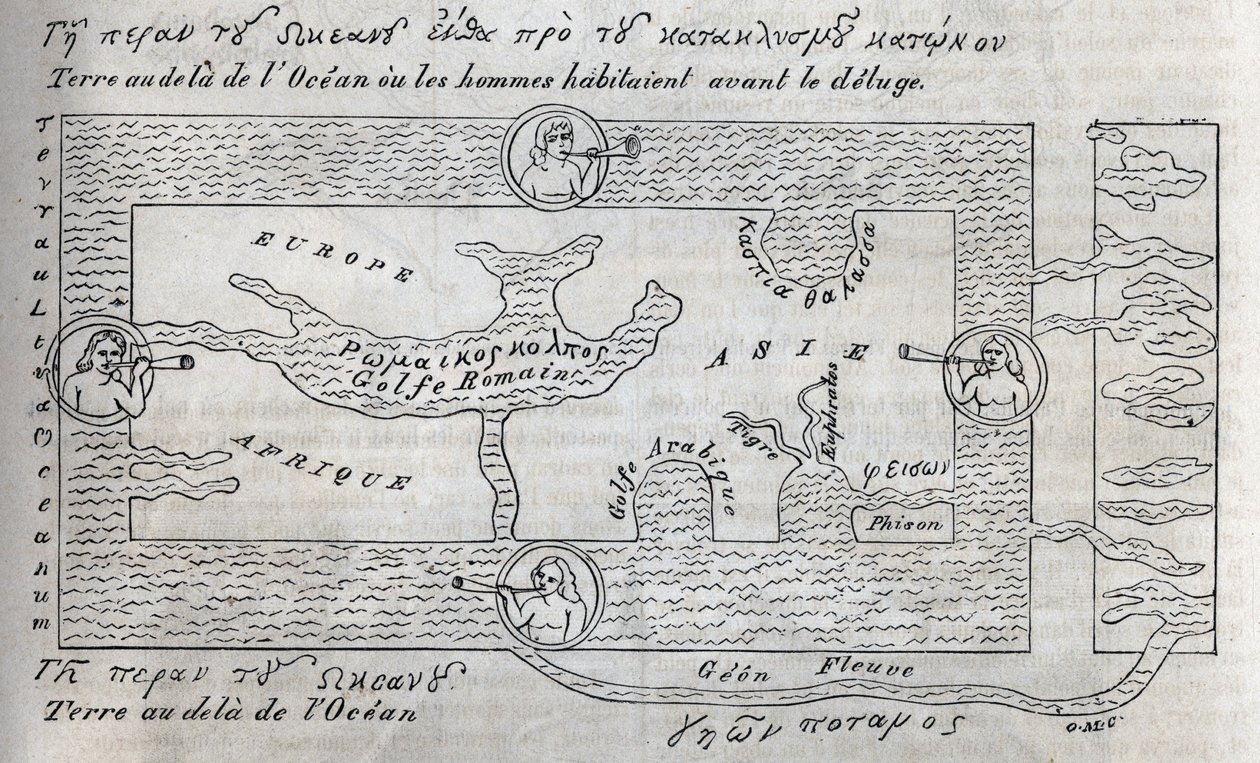 Γῆ περαν τȣ Ωκεανȣ ἔνθα πρὸ τȣ κατακλυσμȣ κατῴκον
Terre au delà de l'Océan où les hommes habitaient avant le déluge.
Terra uLtra Oceanum
EUROPE
Κασπια θαλασσα
Ρωμαικος κολπος
Golfe Romain
ASIE
AFRIQUE
Golfe Arabique
Tigre
Euphrates
φεισων
Phison
Γῆ περαν τȣ Ωκεανȣ.
Terre au delà de l'Océan
Géôn Fleuve
γηῶν ποταμος
O. Mc C.